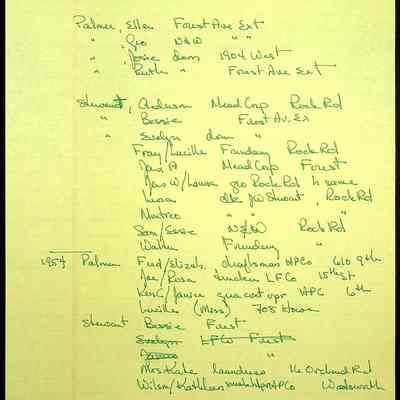 Palmer, Ellen Forest Ave Ext
" , Geo N&W " "
" , Josie dom 1904 West
" Ruth " Forest Ave Ext
Stewart, Anderson Mead Corp Rock Rd
" Bessie Forest Av. Ex
" Evelyn dom "
Fray/Lucille Foundry Rock Rd
Jas A Mead Corp Forest
Jas W/Louisa gro Rock Rd h same
clk JW Stewart, Rock Rd
" " "
Sam/Essie N&W Rock Rd
Walter Foundry "
1954 Palmer Fred/Elizab. draftsman HPCo 610 9th
Jae/Rosa tinder LFCo 15th St
King/Janice opr HPC 6th
Lucille (Mrs) 705
Stewart Bessie Forest
Evelyn LFCo Forest
"
Mrs Kate laundress Orchard Rd
Wilson/Kathleen HPCo Woodsworth